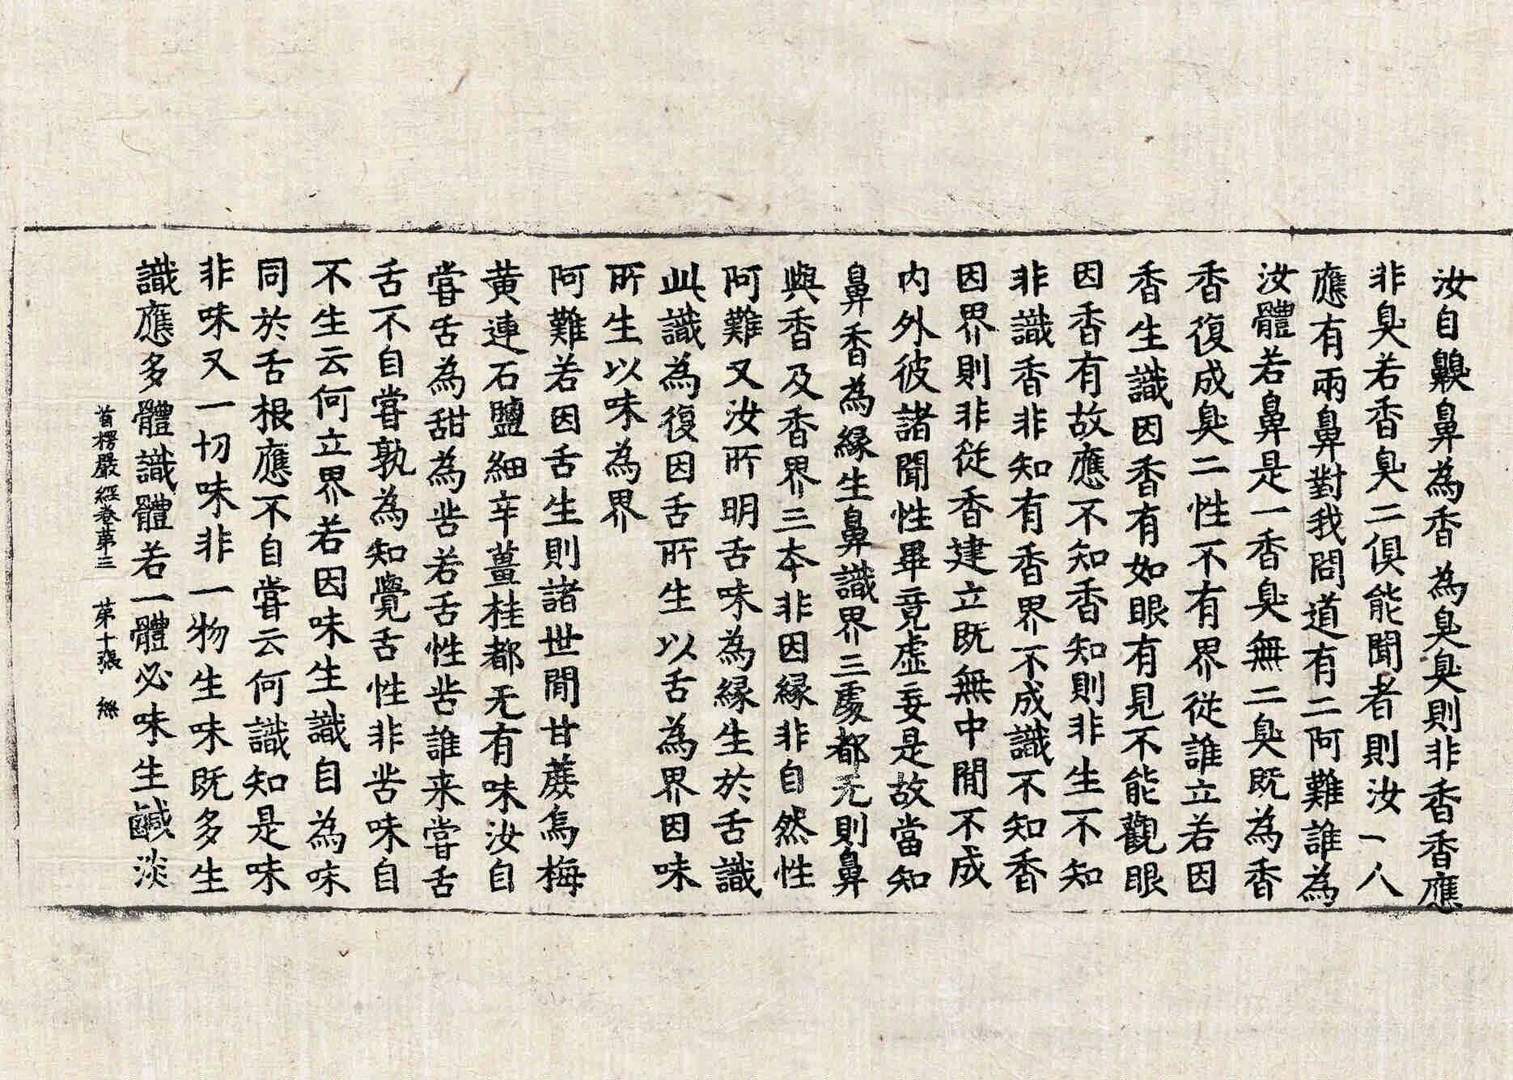 汝自齅鼻為香為臭臭則非香香應
非臭若香臭二俱能聞者則汝一人
應有兩鼻對我問道有二阿難誰為
汝體若鼻是一香臭無二臭既為香
香復成臭二性不有界從誰立若因
香生識因香有如眼有見不能觀眼
因香有故應不知香知則非生不知
非識香非知有香界不成識不知香
因界則非從香建立既無中間不成
內外彼諸聞性畢竟虛妄是故當知
鼻香為緣生鼻識界三處都无則鼻
與香及香界三本非因緣非自然性
阿難又汝所明舌味為緣生於舌識
此識為復因舌所生以舌為界因味
所生以味為界
阿難若因舌生則諸世間甘蔗烏梅
黃連石鹽細辛薑桂都无有味汝自
嘗舌為甜為苦若舌性苦誰来嘗舌
舌不自嘗孰為知覺舌性非苦味自
不生云何立界若因味生識自為味
同於舌根應不自嘗云何識知是味
非味又一切味非一物生味既多生
識應多體識體若一體必味生鹹淡
首楞嚴經卷第三 第十張